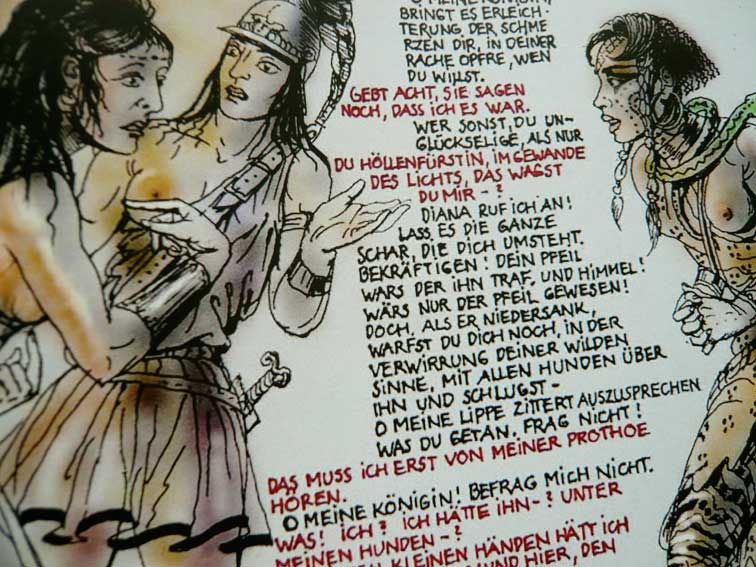 BRINGT ES ERLEICH-
TERUNG, DER SCHME
RZEN DIR, IN DEINER
RACHE OPFRE, WEN
DU WILLST.
GEBT ACHT, SIE SAGEN
NOCH, DASS ICH ES WAR.
WER SONST, DU UN-
GLÜCKSELIGE, ALS NUR
DU HÖLLENFÜRSTIN, IM GEWANDE
DES LICHTS, DAS WAGST
DU MIR - ?
DIANA RUF ICH AN!
LASS, ES DIE GANZE
SCHAR, DIE DICH UMSTEHT.
BEKRÄFTIGEN! DEIN PFEIL
WARS DER IHN TRAF, UND HIMMEL!
WÄRS NUR DER PFEIL GEWESEN!
DOCH, ALS ER NIEDERSANK,
WARFST DU DICH NOCH, IN DER
VERWIRRUNG DEINER WILDEN
SINNE, MIT ALLEN HUNDEN ÜBER
IHN UND SCHLUGST -
O MEINE LIPPE ZITTERT AUSZUSPRECHEN
WAS DU GETAN. FRAG NICHT!
DAS MUSS ICH ERST VON MEINER PROTHOE
HÖREN.
O MEINE KÖNIGIN! BEFRAG MICH NICHT.
WAS! ICH? ICH HÄTTE IHN-? UNTER
MEINEN HUNDEN-?
KLEINEN HÄNDEN HÄTT ICH
UND HIER, DEN